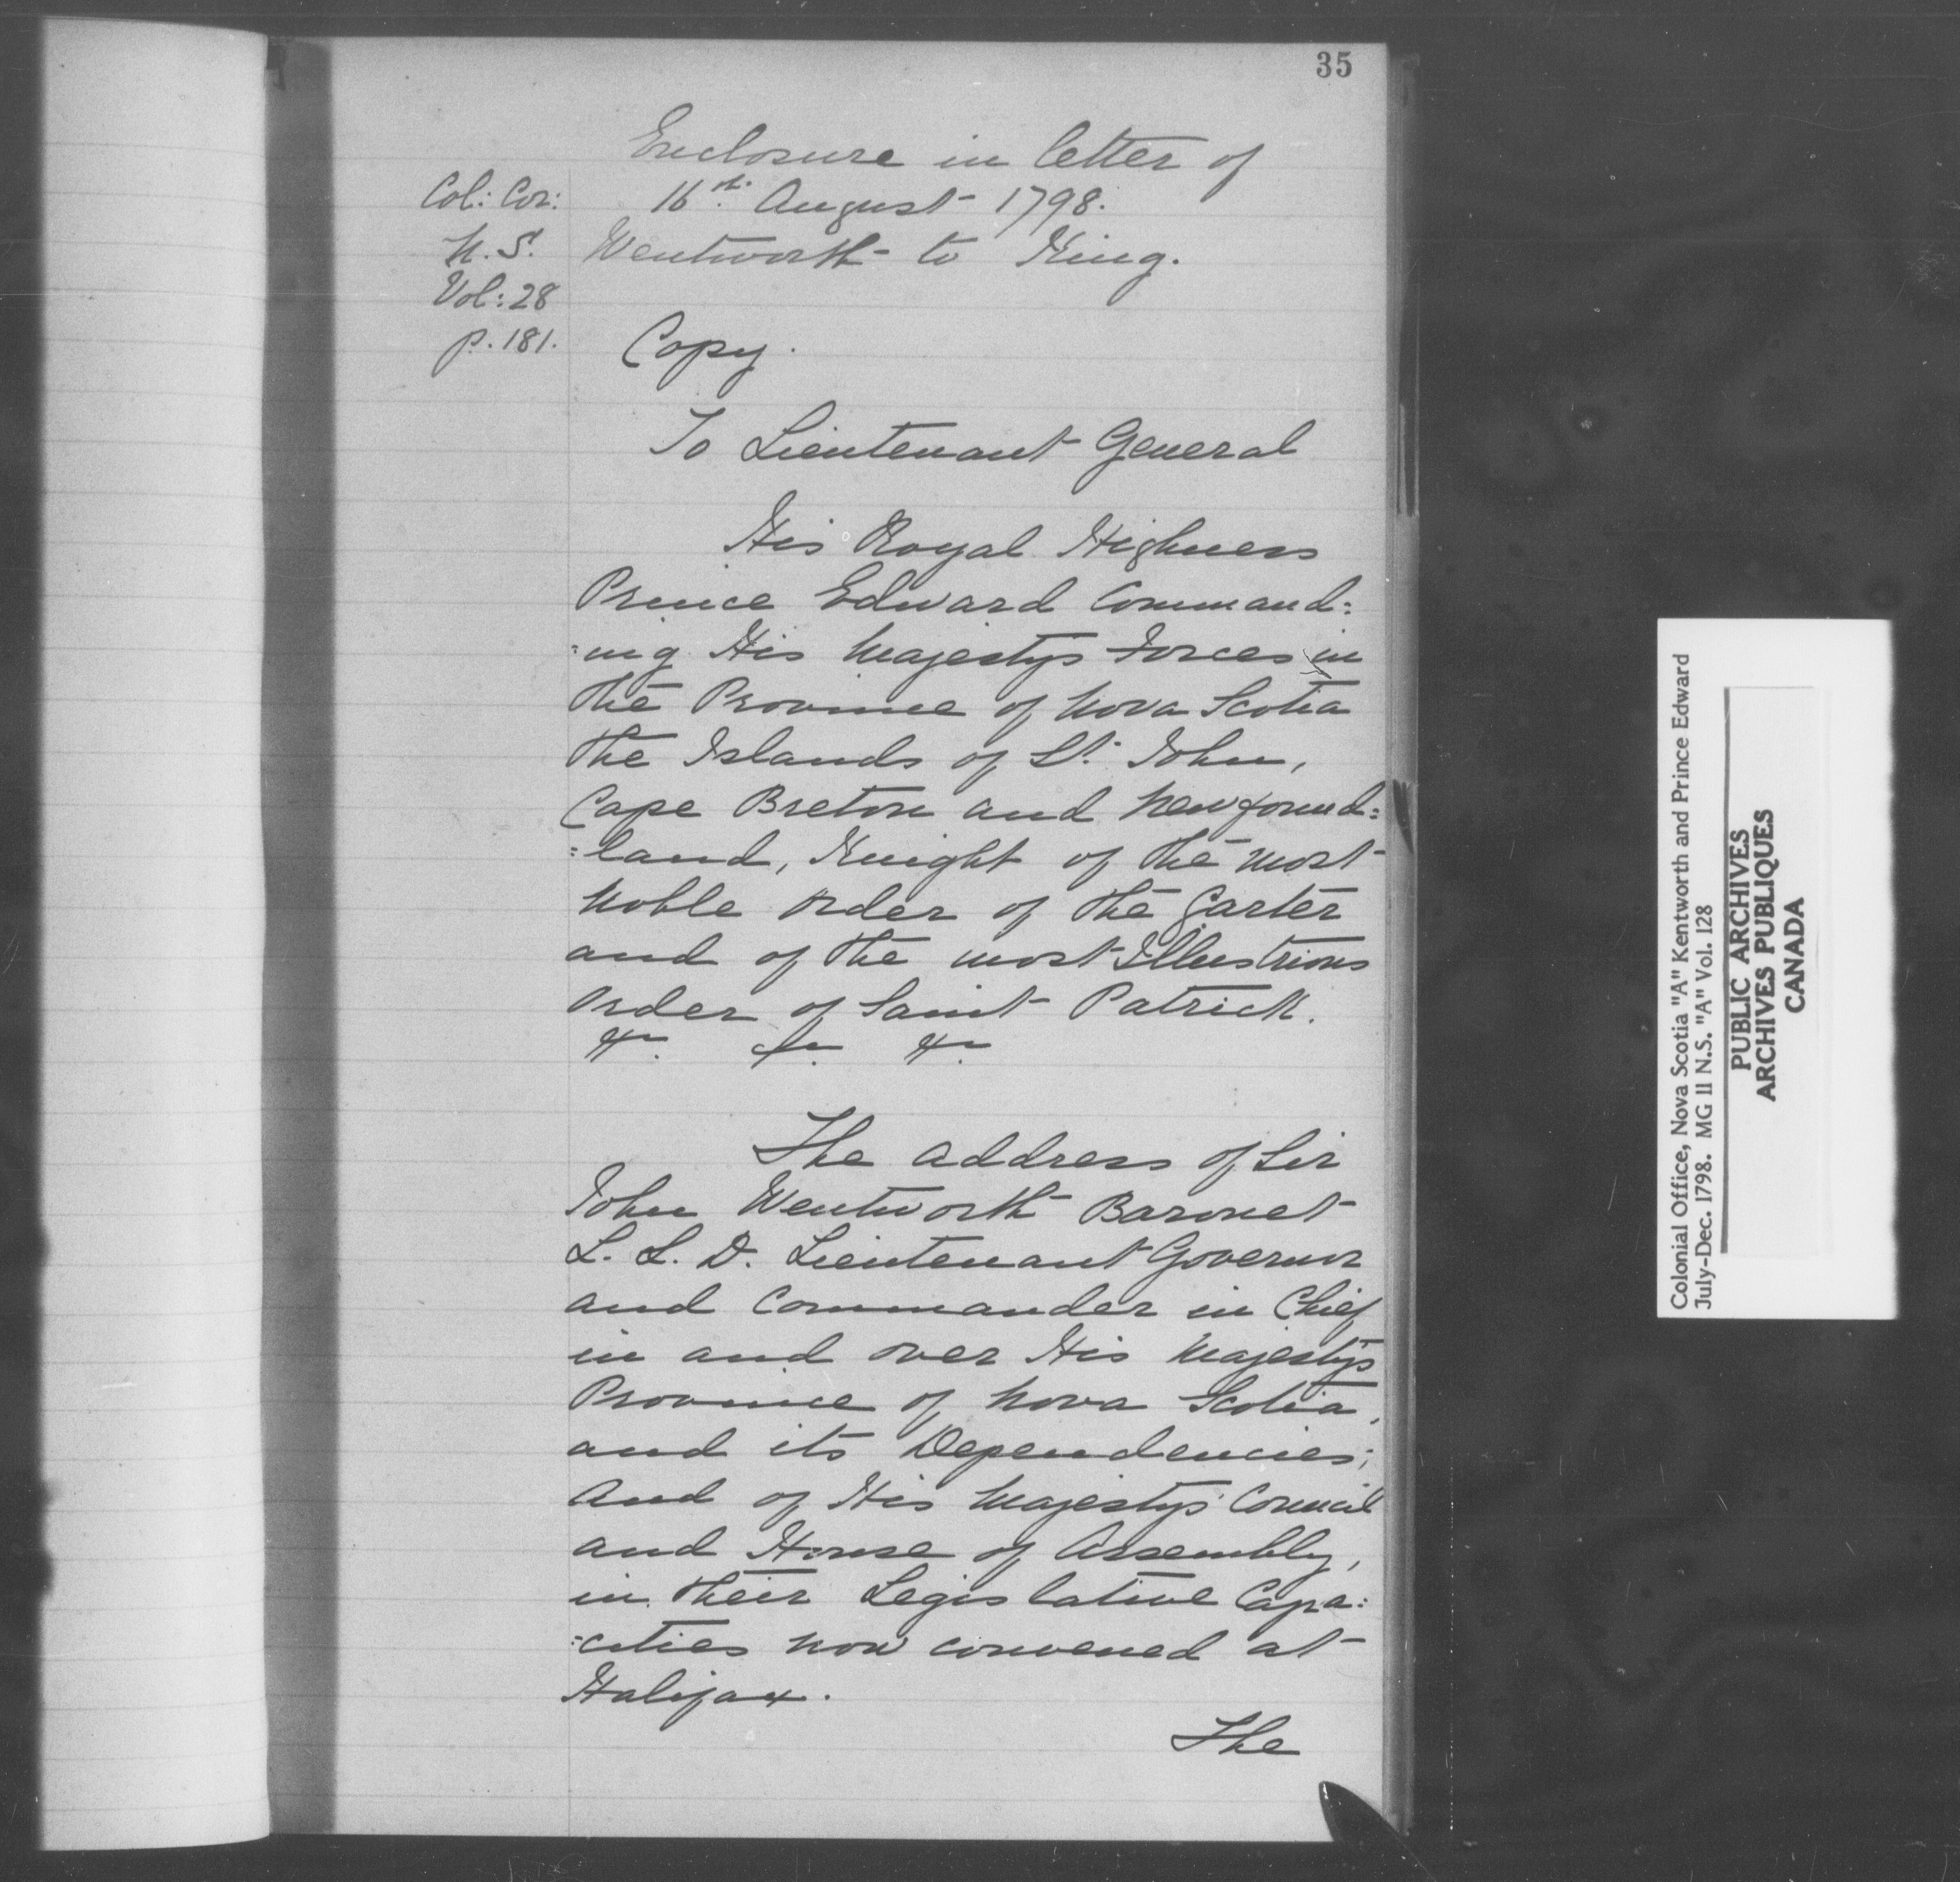 35
Enclosure in letter of
16th. August 1798.
Wentworth to King.
Col: Cor:
N.S.
Vol: 28
p. 181.
Copy.
To Lieutenant General
His Royal Highness
Prince Edward Command:
:ing His Majestys Forces in
the Province of Nova Scotia
the Islands of St. John,
Cape Breton and Newfound:
:land, Knight of the most
Noble Order of the Garter
and of the most Illustrious
Order of Saint Patrick.
&c. &c. &c.
The address of Sir
John Wentworth Baronet
L. L. D. Lieutenant Governor
and Commander in Chief
in and over His Majesty's
Province of Nova Scotia,
and its Dependencies;
And of His Majestys Council
and House of Assembly,
in their Legislative Capa:
:cities now convened at
Halifax.
The
Colonial Office, Nova Scotia "A" Kentworth and Prince Edward
July-Dec. 1798. MG 11 N.S. "A" Vol. 128
PUBLIC ARCHIVES
ARCHIVES PUBLIQUES
CANADA